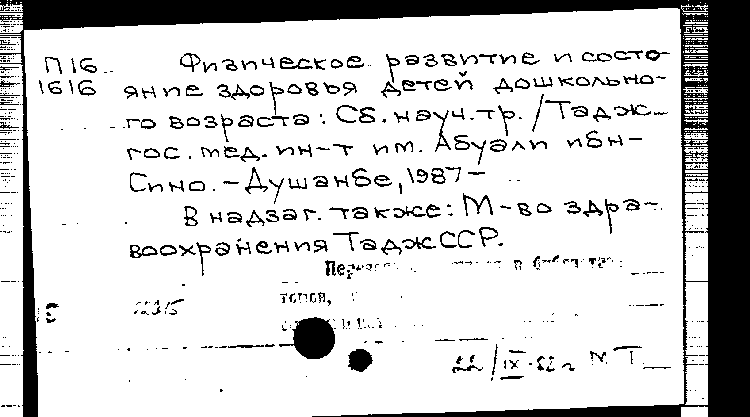 П16
1616
Физическое развитие и состо-
яние здоровья детей дошкольно-
го возраста: Сб. науч. тр. / Тадж.
гос. мед. ин-т им. Абуали ибн-
Сино. - Душанбе, 1987 -
В надзаг. также: М-во здра-
воохранения Тадж ССР.